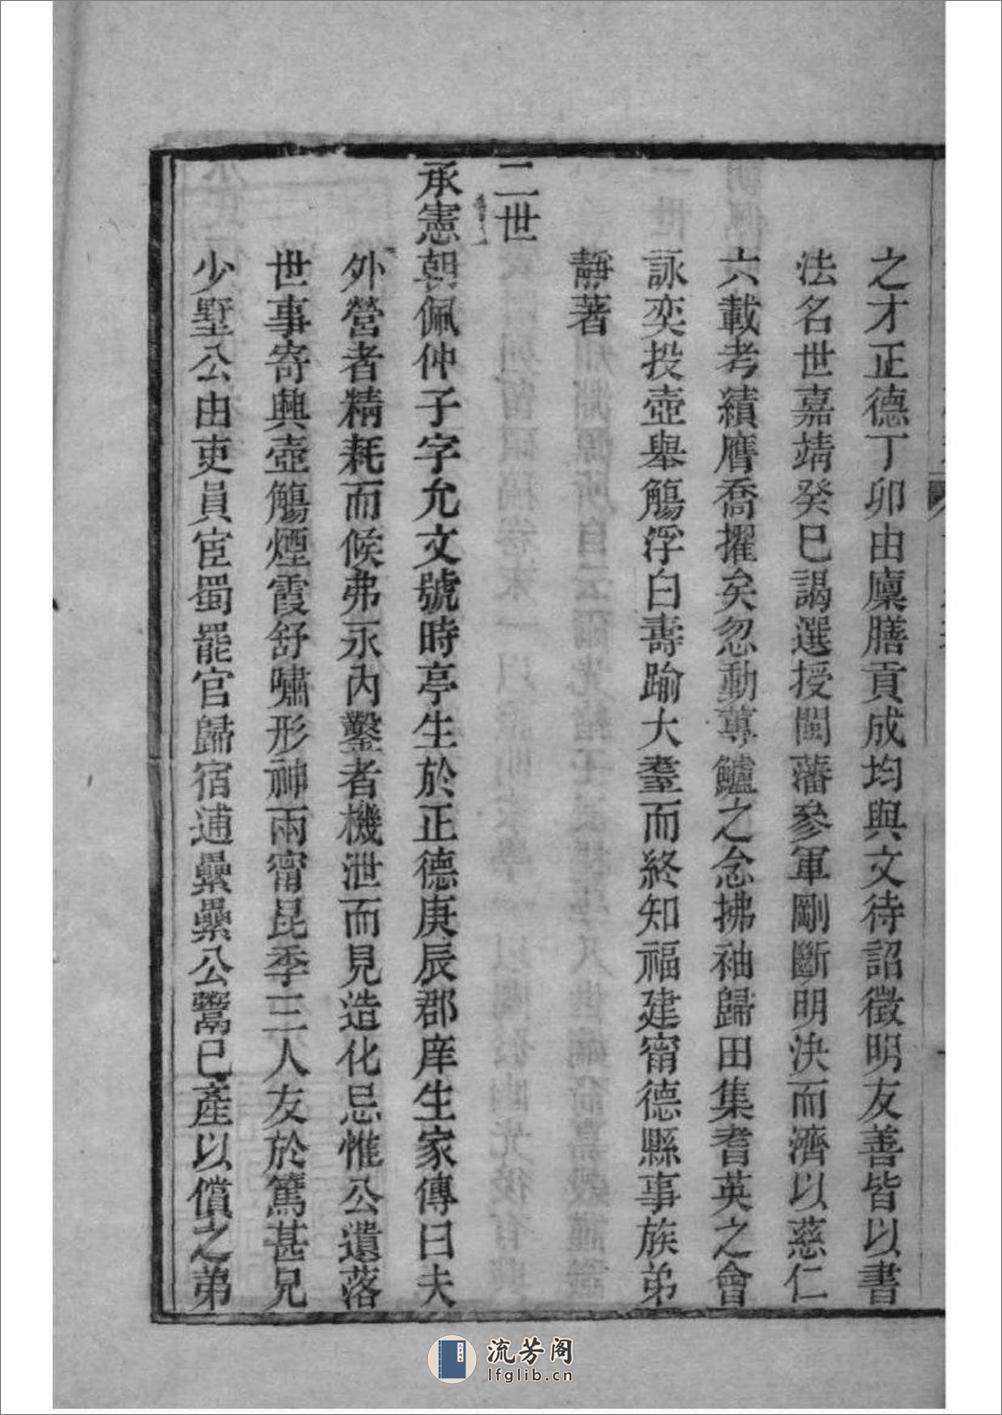 之才正德丁卯由廩膳貢成均與文待詔徵明友善皆以書
法名世嘉靖癸巳謁選授閩藩參軍剛斷明決而濟以慈仁
六載考績膺喬擢矣忽動蓴鱸之念拂袖歸田集耆英之會
詠奕投壺舉觴浮白壽踰大耋而終知福建甯德縣事族弟
靜著
二世
承憲朝佩仲子字允文號時亭生於正德庚辰郡庠生家傳曰夫
外營者精耗而候弗永內鑿者機泄而見造化忌惟公遺落
世事寄興壺觴煙霞舒嘯形神兩甯昆季三人友於篤甚兄
少墅公由吏員宦蜀罷官歸宿逋纍纍公鬻已產以償之弟
流芳阁
lfglib.cn